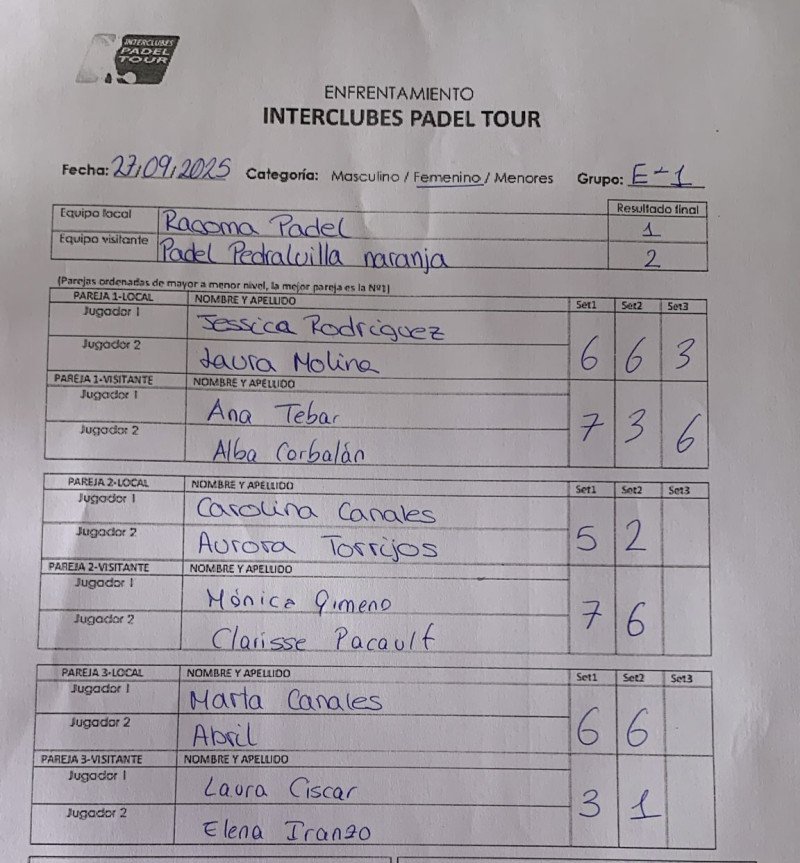 INTERCLUBES
PADEL
TOUR
ENFRENTAMIENTO
INTERCLUBES PADEL TOUR
Fecha: 27/09/2025 Categoría: Masculino / Femenino / Menores Grupo: E-1
Resultado final
Equipo local Racoma Padel 1
Equipo visitante Padel Pedralvilla naranja 2
(Parejas ordenadas de mayor a menor nivel, la mejor pareja es la Nº1)
PAREJA 1-LOCAL NOMBRE Y APELLIDO Set1 Set2 Set3
Jugador 1 Jessica Rodriguez
Jugador 2 Laura Molina 6 6 3
PAREJA 1-VISITANTE NOMBRE Y APELLIDO
Jugador 1 Ana Tebar
Jugador 2 Alba Corbalán 7 3 6
PAREJA 2-LOCAL NOMBRE Y APELLIDO Set1 Set2 Set3
Jugador 1 Carolina Canales
Jugador 2 Aurora Torrijos 5 2
PAREJA 2-VISITANTE NOMBRE Y APELLIDO
Jugador 1 Mónica Gimeno
Jugador 2 Clarisse Pacault 7 6
PAREJA 3-LOCAL NOMBRE Y APELLIDO Set1 Set2 Set3
Jugador 1 Marta Canales
Jugador 2 Abril 6 6
PAREJA 3-VISITANTE NOMBRE Y APELLIDO
Jugador 1 Laura Ciscar
Jugador 2 Elena Iranzo 3 1